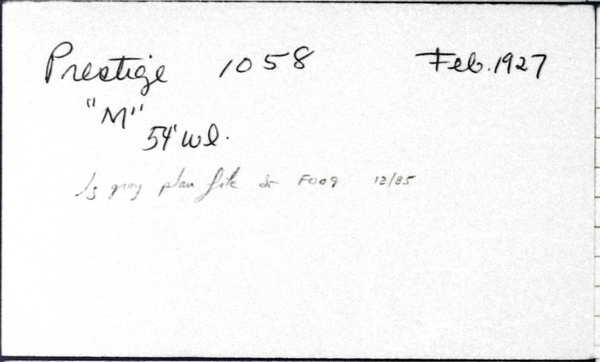 Prestige 1058 Feb. 1927
"M"
54' wl.
Lg gray plan file dr F009 12/85